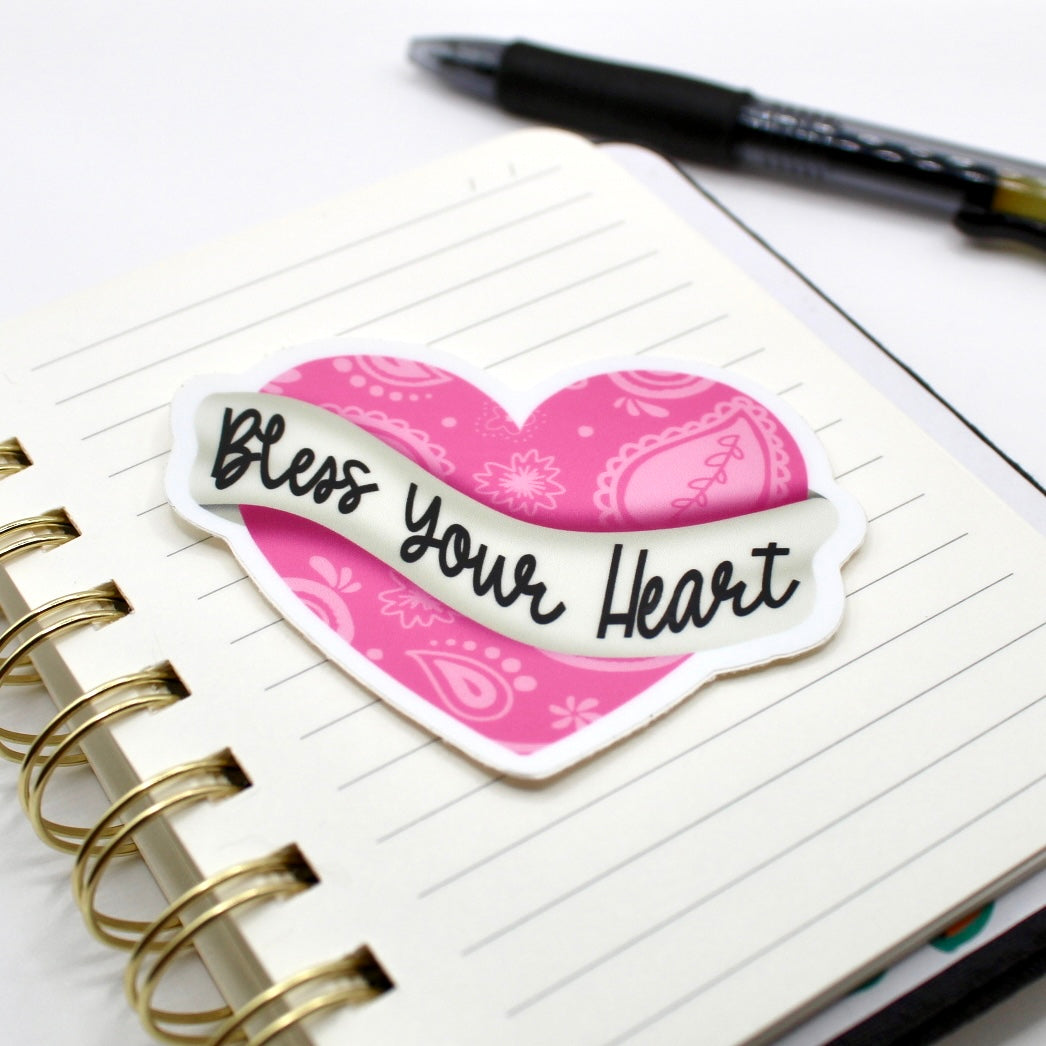 Bless Your Heart